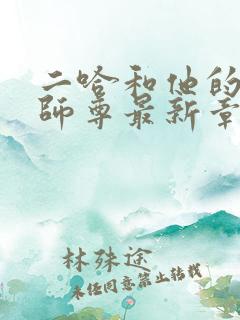 二哈和他的
師尊最新章
林殊途
未经同意禁止转载